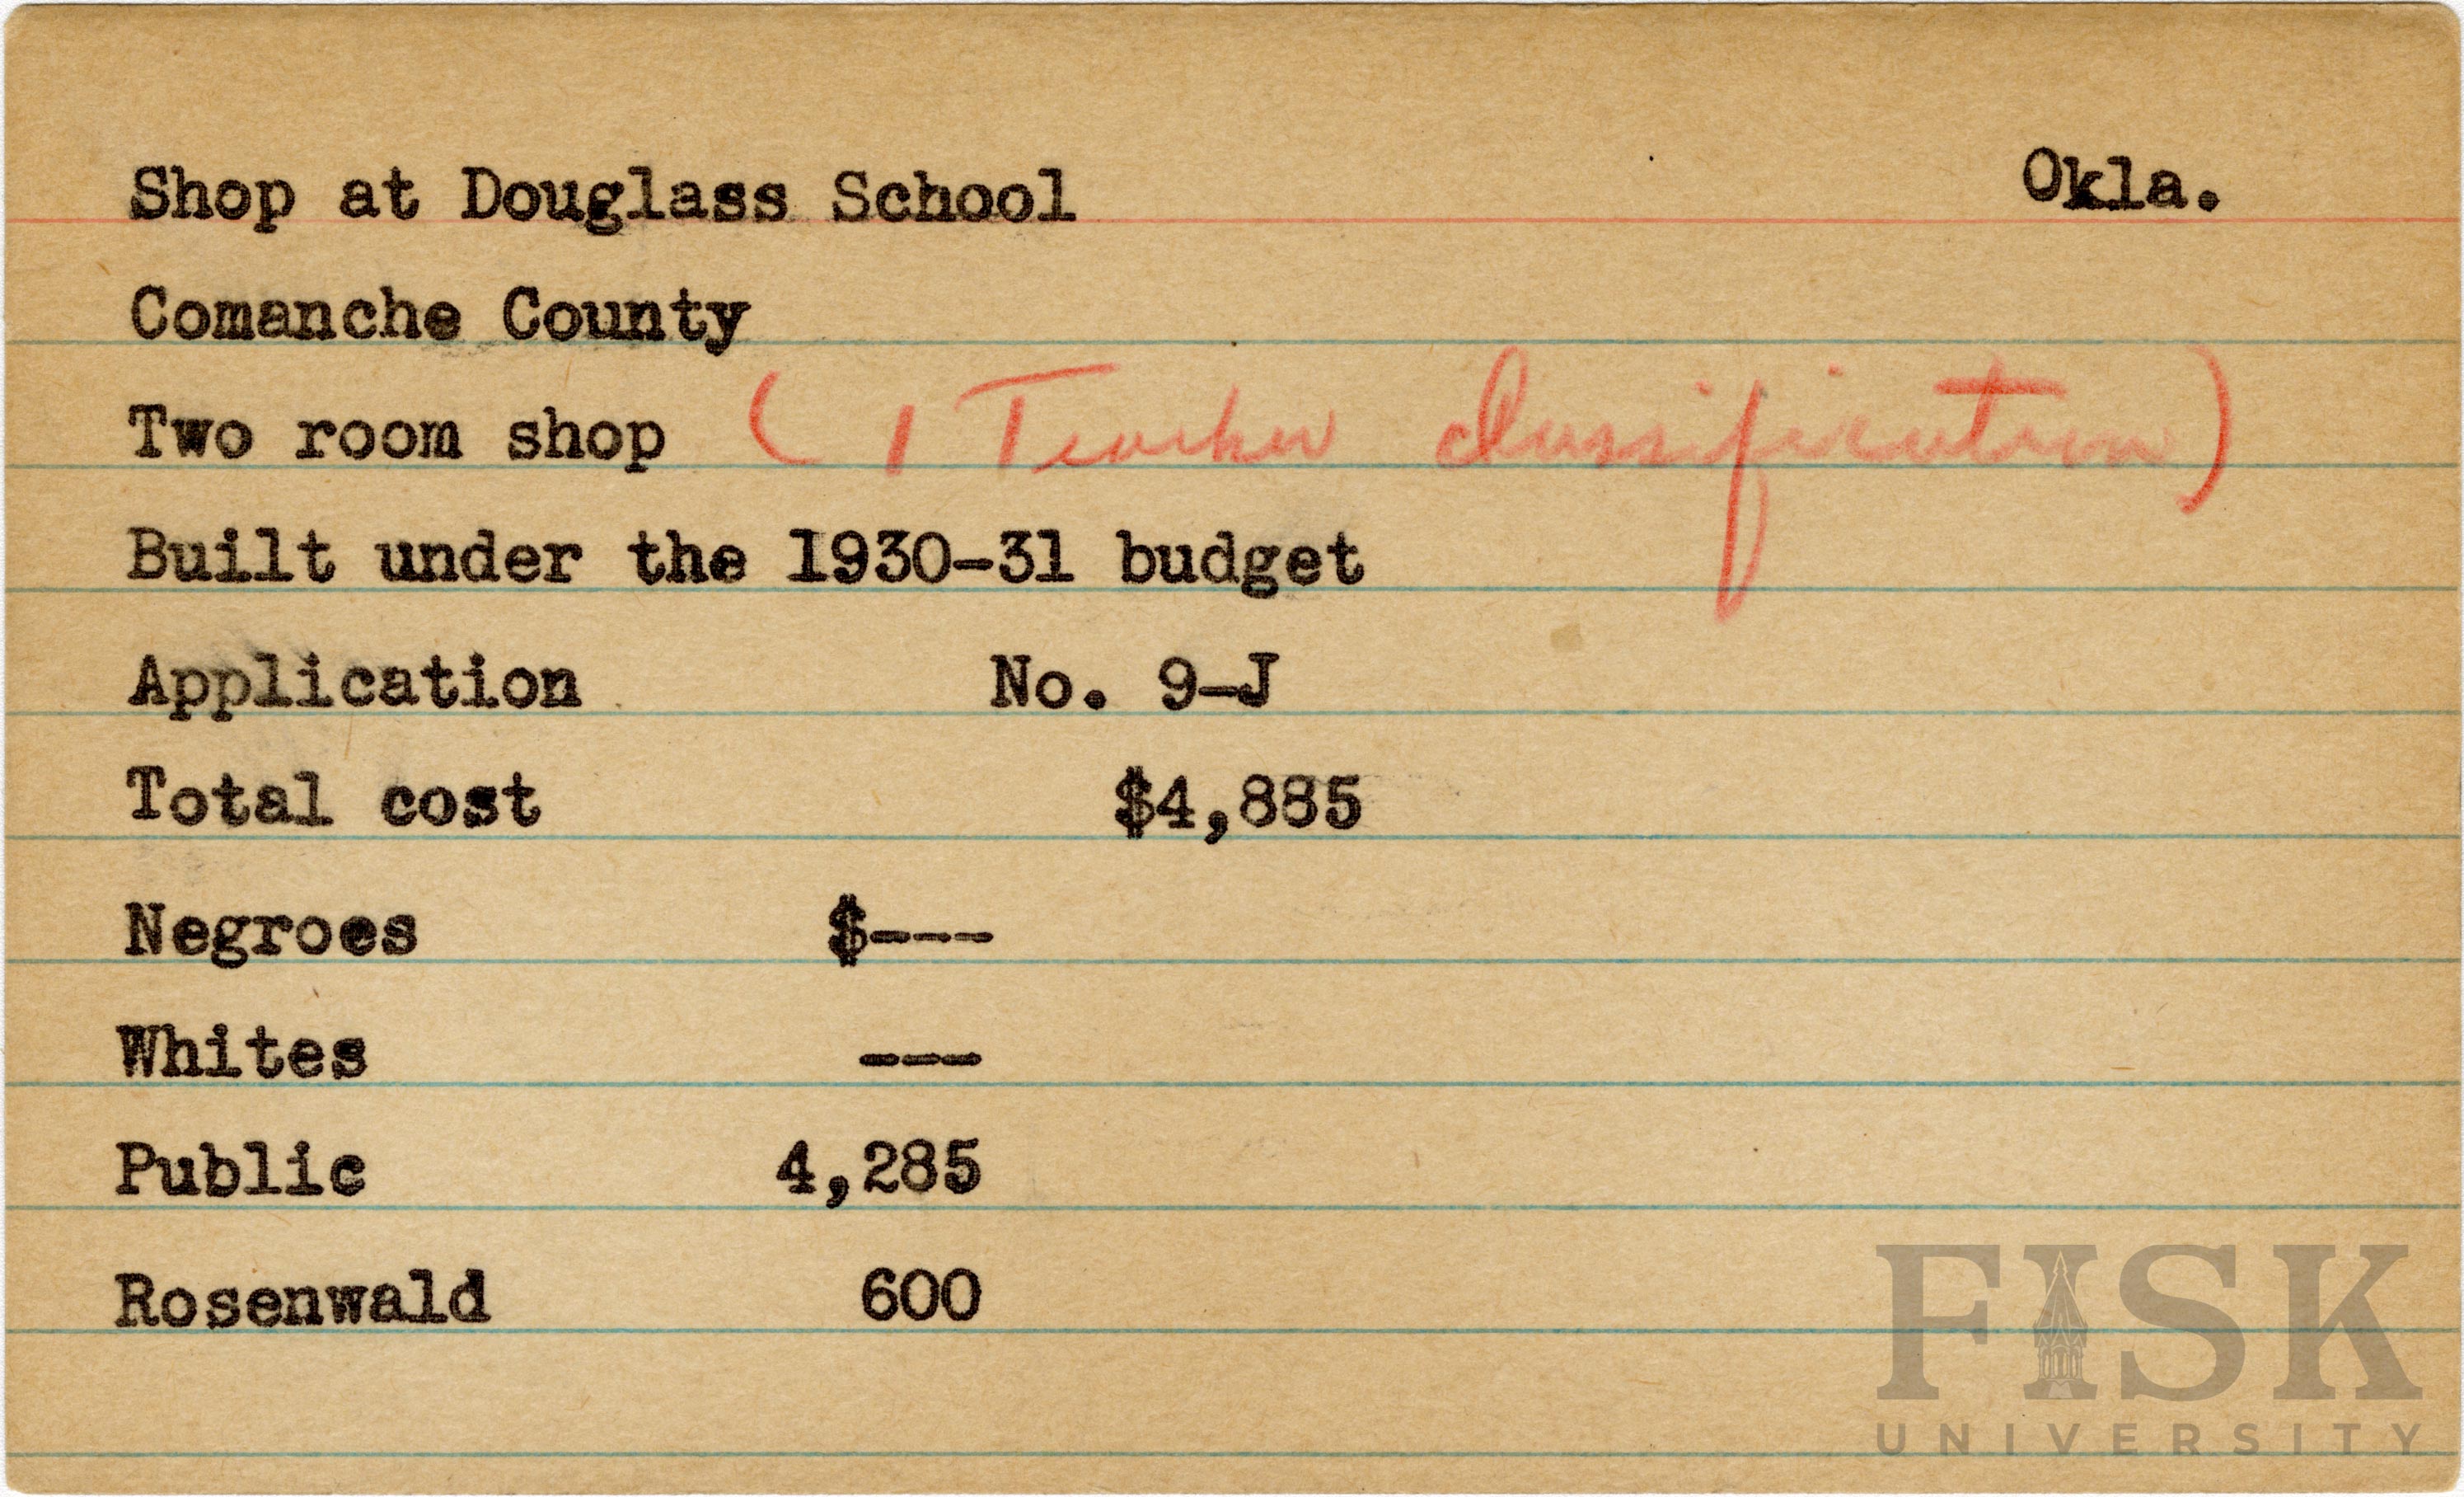 Shop at Douglass School Okla.
Comanche County
Two room shop (1 Teacher classification)
Built under the 1930-31 budget
Application No. 9-J
Total cost $4,885
Negroes $---
Whites ---
Public 4,285
Rosenwald 600
FISK
UNIVERSITY